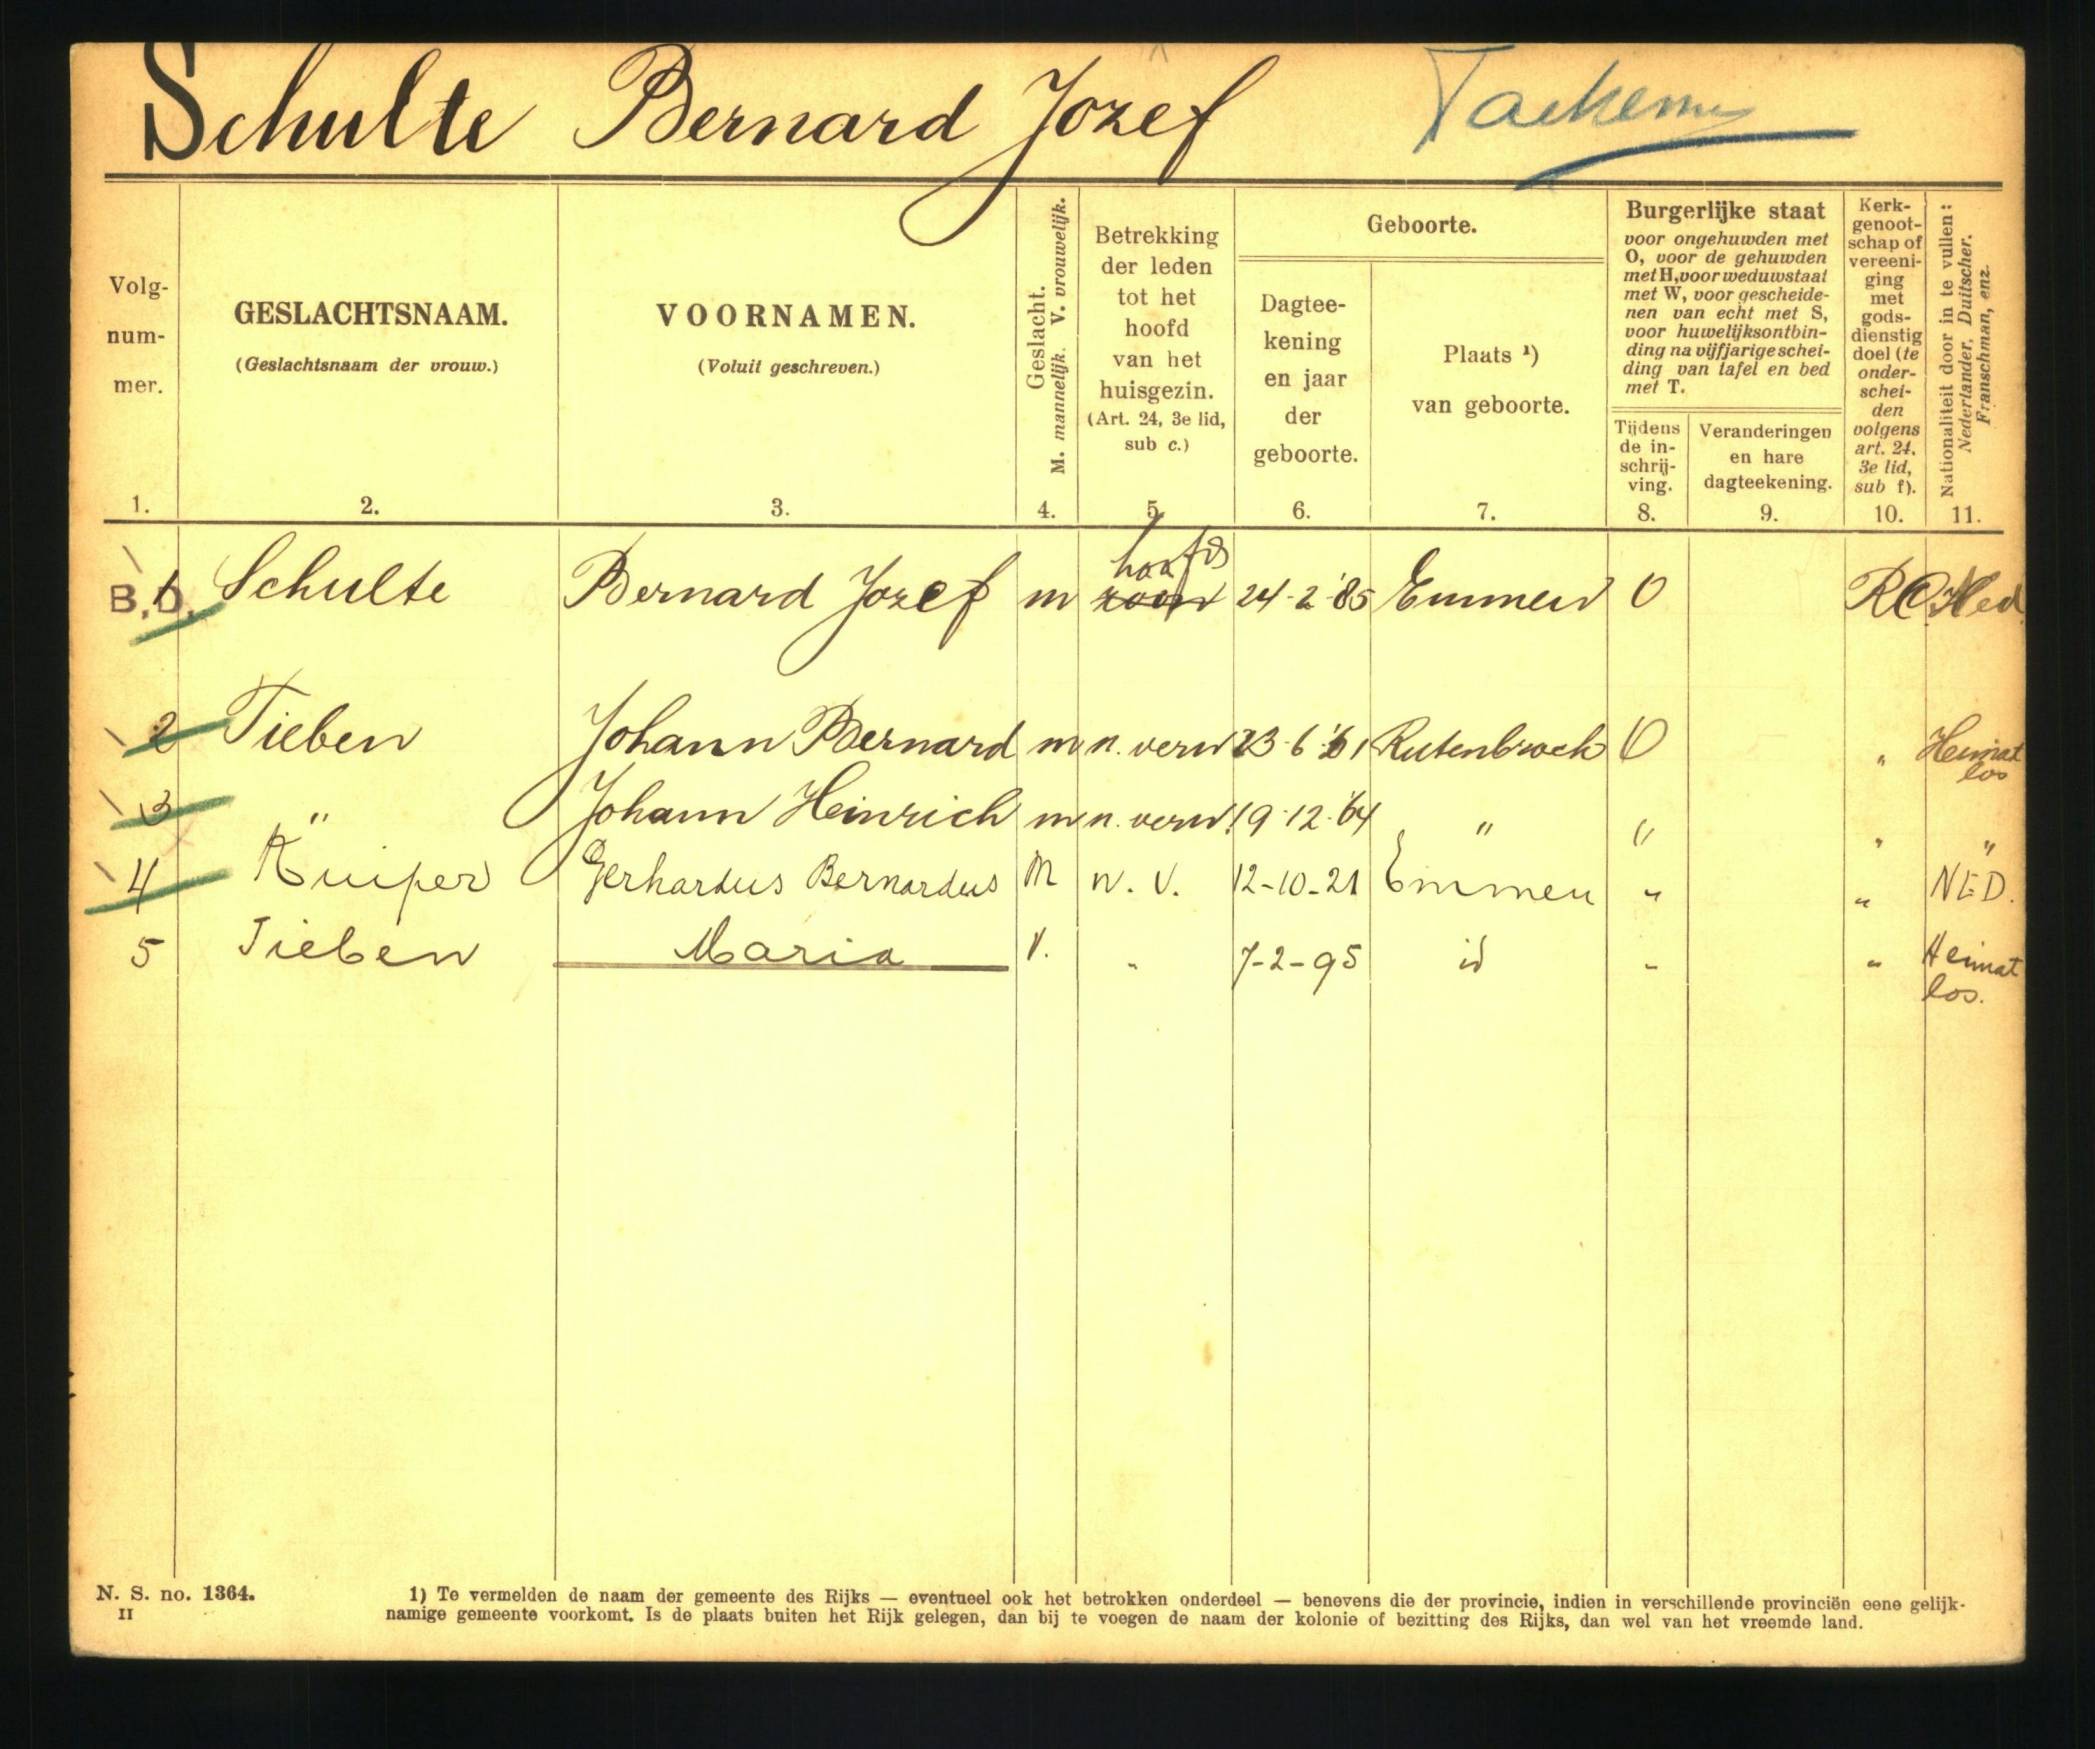 Schulte Bernard Jozef
Volg-
num-
mer.
1.
GESLACHTSNAAM.
(Geslachtsnaam der vrouw.)
2.
VOORNAMEN.
(Voluit geschreven.)
3.
Geslacht.
M. mannelijk. V. vrouwelijk.
4.
Betrekking
der leden
tot het
hoofd
van het
huisgezin.
(Art. 24, 3e lid,
sub c.)
5
Geboorte.
Dagtee-
kening
en jaar
der
geboorte.
6.
Plaats ¹)
van geboorte.
7.
Burgerlijke staat
voor ongehuwden met
O, voor de gehuwden
met H, voor weduwstaat
met W, voor gescheide-
nen van echt met S,
voor huwelijksontbin-
ding na vijfjarige schei-
ding van tafel en bed
met T.
Tijdens
de in-
schrij-
ving.
8.
Veranderingen
en hare
dagteekening.
9.
Kerk-
genoot-
schap of
vereeni-
ging
met
gods-
dienstig
doel (te
onder-
schei-
den
volgens
art. 24,
3e lid,
sub f).
10.
Nationaliteit door in te vullen:
Nederlander, Duitscher.
Franschman, enz.
11.
B.D. Schulte Bernard Jozef m zoon hoofd 24-2-'85 Emmen O RC Ned.
2 Tieben Johann Bernard m n. verw 23-6-'61 Rutenbrock O " Heimat
los
3 " Johann Heinrich m n. verw. 19-12-'64 " " " "
4 Kuiper Gerhardus Bernardus M N. V. 12-10-21 Emmen " " NED.
5 Tieben Maria V. " 7-2-95 id " " Heimat
los.
N. S. no. 1364.
II
1) Te vermelden de naam der gemeente des Rijks — eventueel ook het betrokken onderdeel — benevens die der provincie, indien in verschillende provinciën eene gelijk-
namige gemeente voorkomt. Is de plaats buiten het Rijk gelegen, dan bij te voegen de naam der kolonie of bezitting des Rijks, dan wel van het vreemde land.